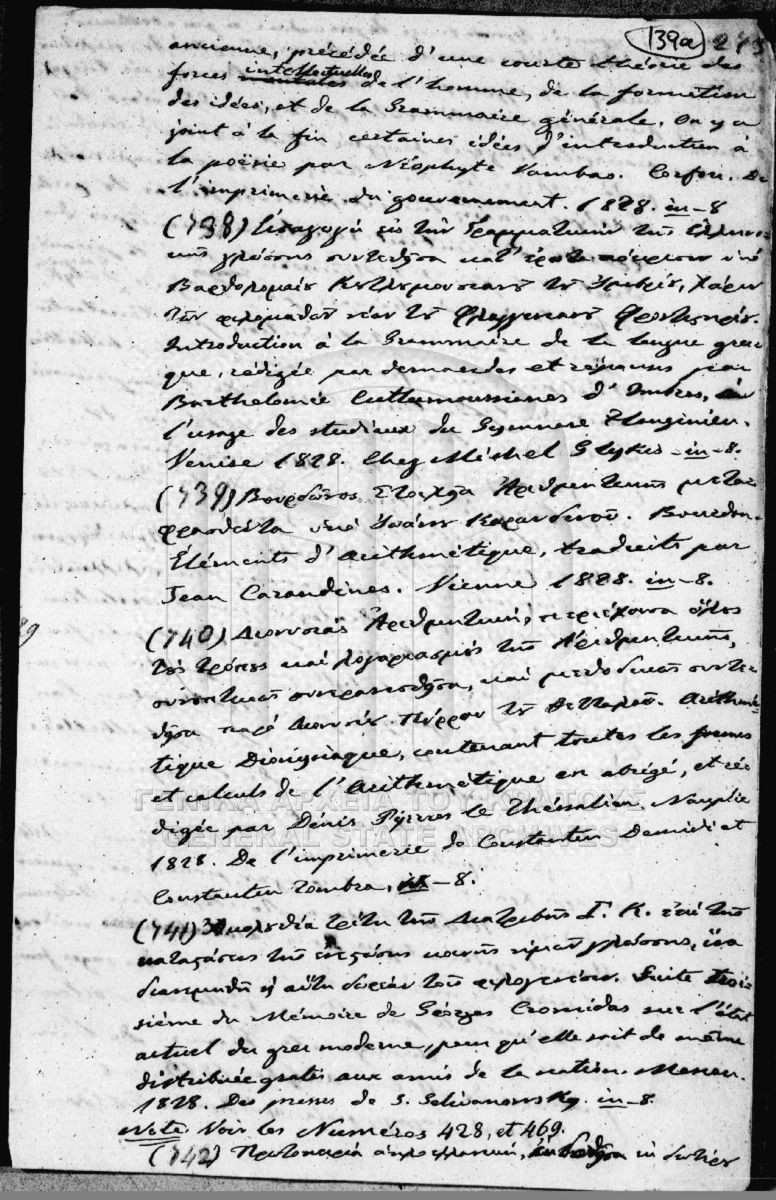 139a
ancienne, précédée d'une courte théorie des
forces intellectuelles de l'homme, de la formation
des idées, et de la Grammaire générale. On y a
joint à la fin certaines idées d'introduction à
la poësie par Néophyte Vambas. Corfou. De
l'imprimerie du gouvernement. 1828. in-8
(738) Εἰσαγωγὴ εἰς τὴν Γραμματικὴν τῆς Ἑλληνι-
κῆς γλώσσης συντεθεῖσα κατ' ὑπὸ
Βαρθολομαίου Κουτλουμουσιανοῦ τοῦ Ἰμβρίου, χάριν
τῶν φιλομαθῶν νέων τοῦ Φλαγγινιανοῦ Φροντιστηρίου.
Introduction à la Grammaire de la langue grec-
que, rédigée par demandes et réponses par
Barthelomée Cutlumoussienos d'Imbros, à
l'usage des studieux du Gymnase Flanginien.
Venise 1828. Chez Michel Glykis in-8.
(739) Βουρδῶνος Στοιχεῖα Ἀριθμητικῆς μετα-
φρασθέντα ὑπὸ Ἰωάννου Καρανδινοῦ. Bourdon.
Éléments d'Arithmétique, traduits par
Jean Carandinos. Vienne 1828. in-8.
(740) Διονυσιὰς Ἀριθμητική, περιέχουσα ὅλους
τοὺς τρόπους καὶ λογαριασμοὺς τῆς Ἀριθμητικῆς,
συνοπτικῶς συνερανισθεῖσα, καὶ μεθοδικῶς συντε-
θεῖσα παρὰ Διονυσίου Πύρρου τοῦ Θετταλοῦ. Arithmé-
tique Dionysiaque, contenant toutes les formes
et calculs de l'Arithmétique en abrégé, et ré-
digée par Dénis Pyrros le Théssalien. Nauplie
1828. De l'imprimerie de Constantin Demidi et
Constantin Tombra, in-8.
(741) Ἀκολουθία τρίτη τῆς Διατριβῆς Γ. Κ. ἐπὶ τῆς
καταστάσεως τῆς κοινῆς ἡμῶν γλώσσης, ἵνα
διανεμηθῇ ἡ αὕτη δωρεὰν τοῖς φιλογενέσιν. Suite troi-
sième du Mémoire de Géorges Cromidas sur l'état
actuel du grec moderne, pour qu'elle soit de même
distribuée gratis aux amis de la nation. Moscou.
1828. Des presses de S. Selivanowsky. in-8.
Note. Voir les Numéros 428, et 469.
(742)
ΓΕΝΙΚΑ ΑΡΧΕΙΑ ΤΟΥ ΚΡΑΤΟΥΣ
GENERAL STATE ARCHIVES